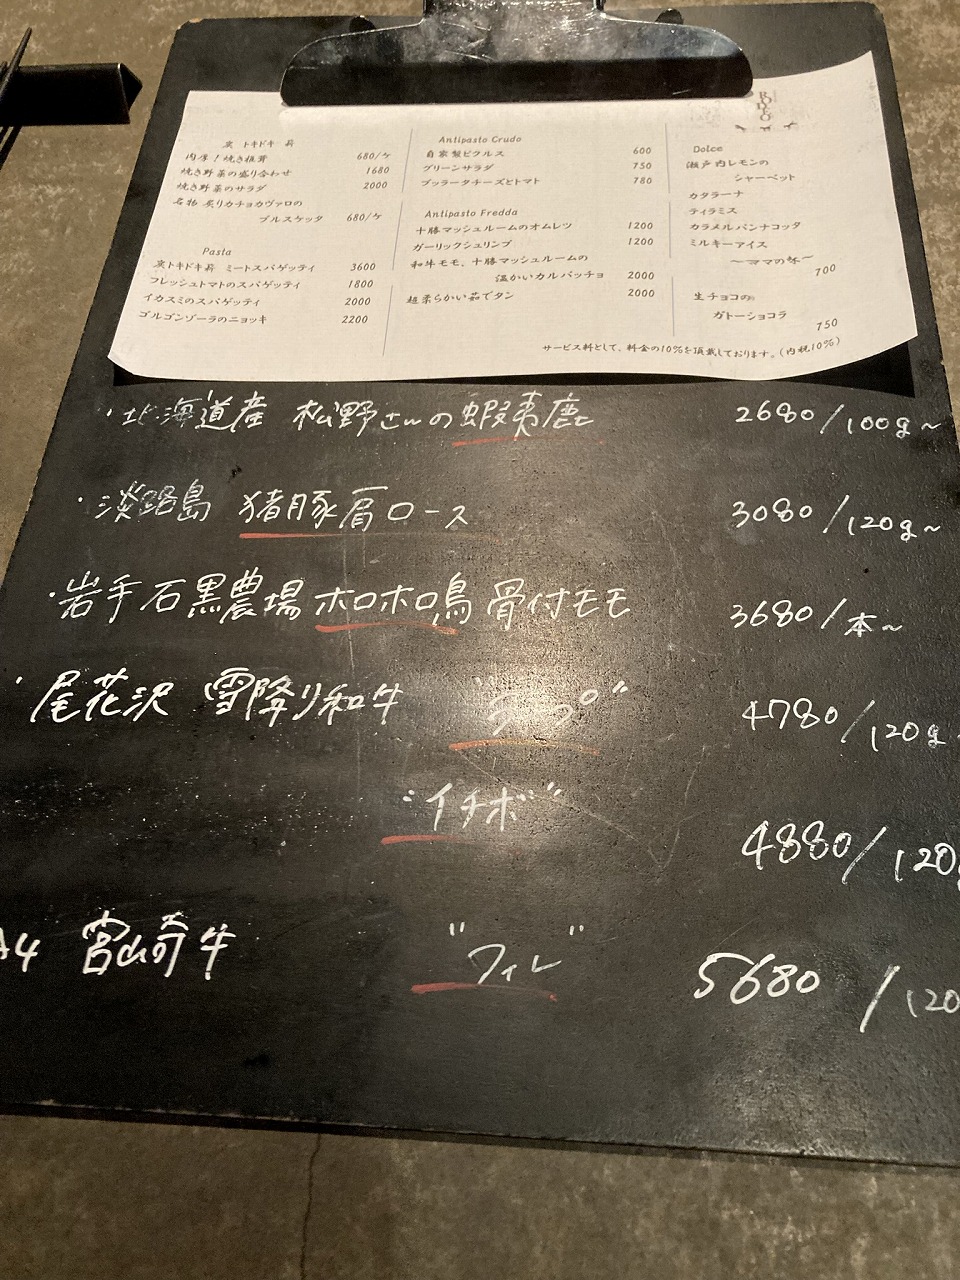 炭 トキドキ 昇
肉厚！焼き椎茸 680/ケ
焼き野菜の盛り合わせ 1680
焼き野菜のサラダ 2000
名物 炙りカチョカヴァロの
ブルスケッタ 680/ケ
Pasta
炭トキドキ昇 ミートスパゲッティ 3600
フレッシュトマトのスパゲッティ 1800
イカスミのスパゲッティ 2000
ゴルゴンゾーラのニョッキ 2200
Antipasto Crudo
自家製ピクルス 600
グリーンサラダ 750
ブッラータチーズとトマト 780
Antipasto Fredda
十勝マッシュルームのオムレツ 1200
ガーリックシュリンプ 1200
和牛モモ、十勝マッシュルームの
温かいカルパッチョ 2000
超柔らかい茹でタン 2000
Dolce
瀬戸内レモンの
シャーベット
カタラーナ
ティラミス
カラメルパンナコッタ
ミルキーアイス
700
生チョコの
ガトーショコラ
750
サービス料として、料金の10%を頂戴しております。(内税10%)
・北海道産 松野さんの蝦夷鹿 2680/100g~
・淡路島 猪豚肩ロース 3080/120g~
・岩手石黒農場ホロホロ鳥 骨付モモ 3680/本~
・尾花沢 雪降り和牛 4780/120g
"イチボ" 4880/120g
A4 宮崎牛 "フィレ" 5680/120